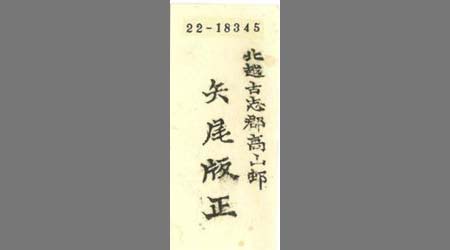 22-18345
北越古志郡高山邨
矢尾版正